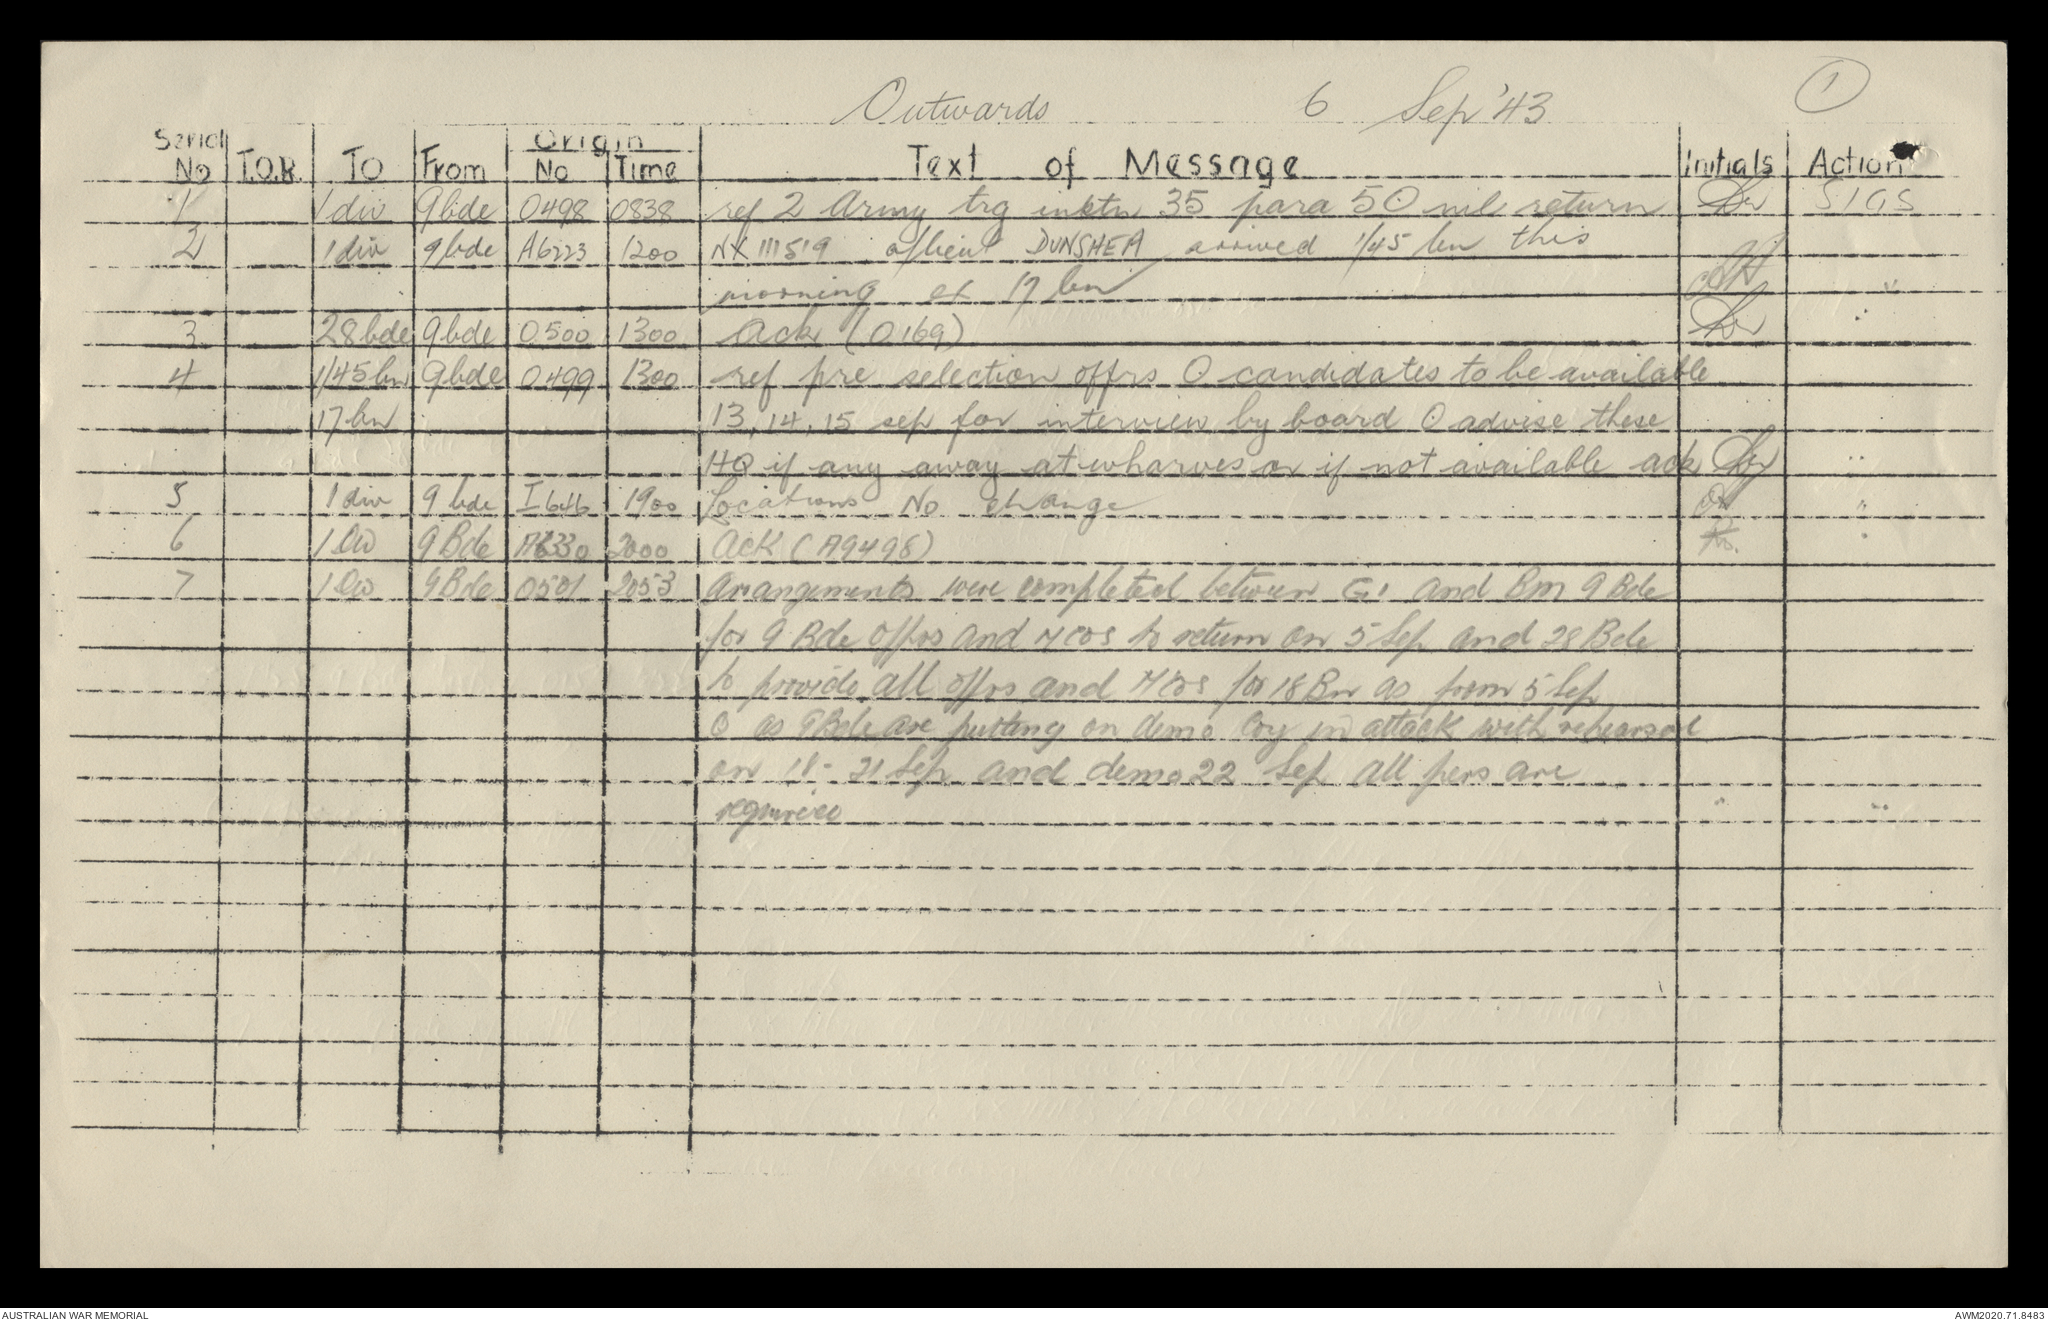 Outwards 6 Sep '43 1
Serial No T.O.R. TO From Origin No Time Text of Message Initials Action
1 1 div 9 bde O498 0838 ref 2 Army trg instn 35 para 5 O nil return SIGS
2 1 div 9 bde A6223 1200 NX 111519 DUNSHEA arrived 1/45 bn this
morning ex 17 bn "
3 28 bde 9 bde O500 1300 Ack (O169) "
4 1/45 bn 9 bde O499 1300 ref pre selection offrs O candidates to be available
17 bn 13, 14, 15 sep for interview by board O advise these "
HQ if any away at wharves or if not available ack "
5 1 div 9 bde I646 1900 Locations No change "
6 1 Div 9 Bde A6330 2000 Ack (A9498) "
7 1 Div 9 Bde O501 2053 Arrangements were completed between G1 and Bm 9 Bde
for 9 Bde offrs and NCOs to return on 5 Sep and 28 Bde
to provide all offrs and NCOs for 18 Bn as from 5 Sep
O as 9 Bde are putting on demo Coy in attack with rehearsal
on 18 - 21 Sep and demo 22 Sep all pers are
required " "
AUSTRALIAN WAR MEMORIAL AWM2020.71.8483